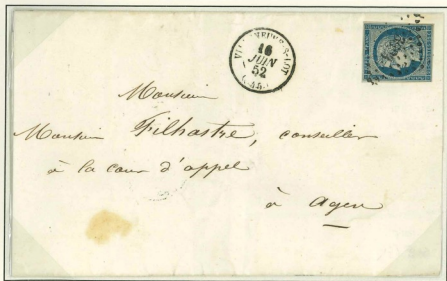 VILLENEUVE-S-LOT
16
JUIN
52
(45)
Monsieur
Monsieur Filhastre, conseiller
à la cour d'appel
à Agen